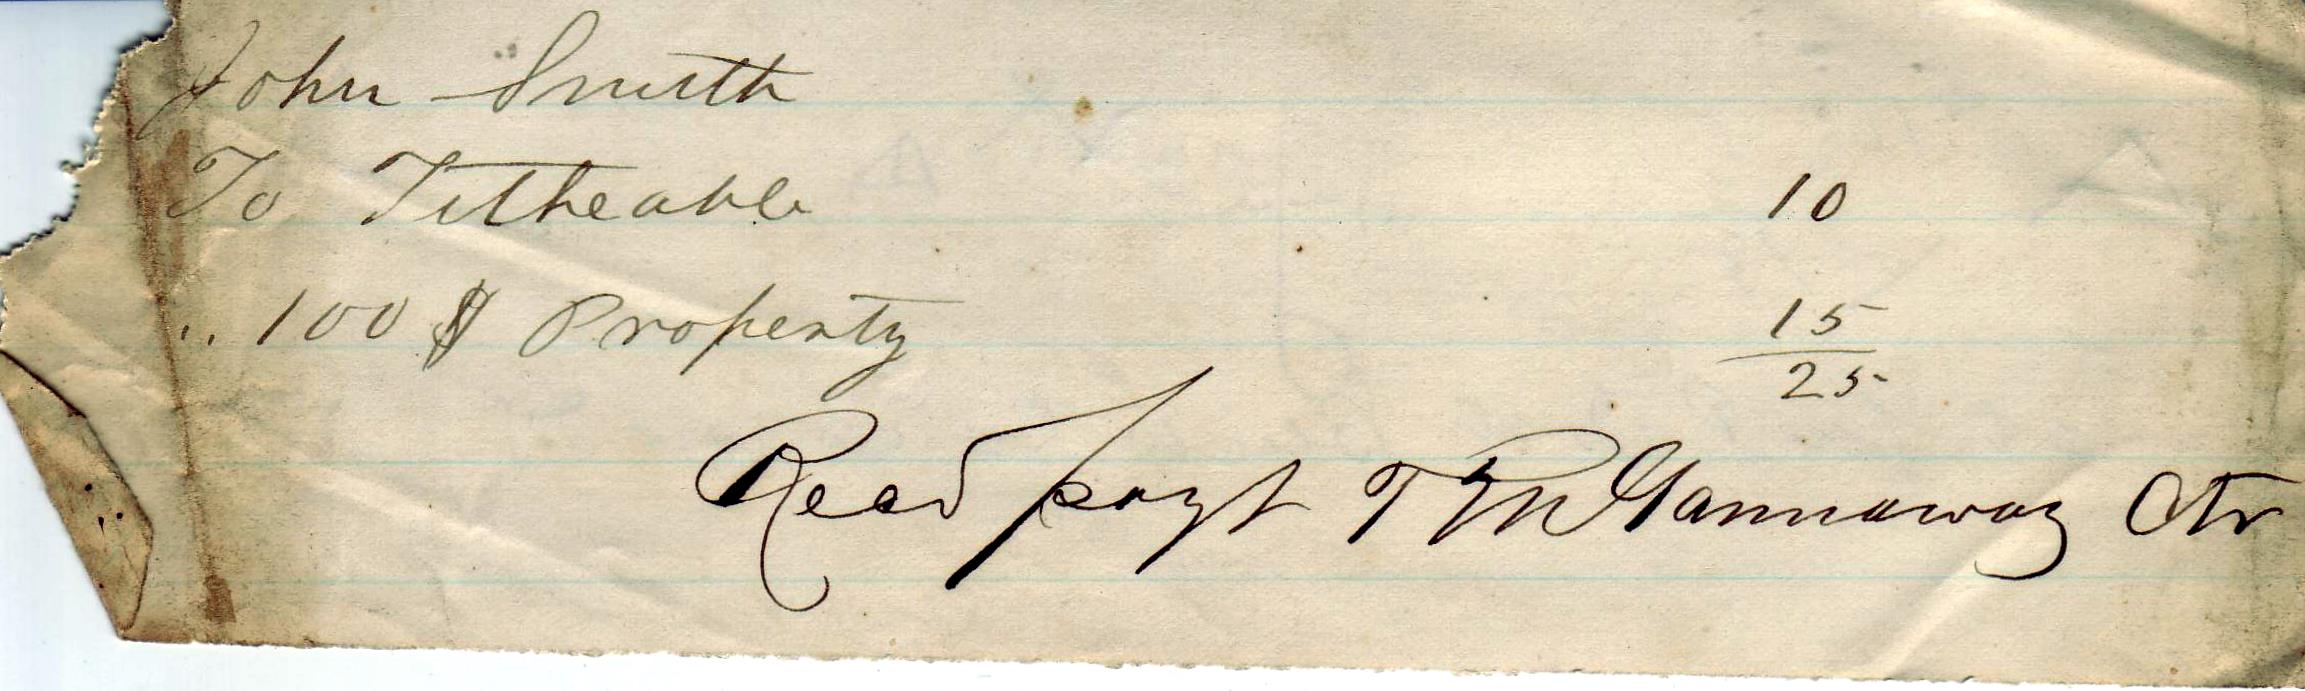 John Smith
To Titheable 10
" 100 $ Property 15
25
Recd payt T R Gannaway Ctr